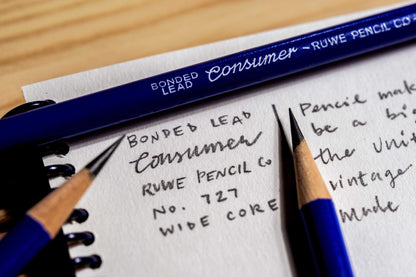 BONDED
LEAD
Consumer ~ RUWE PENCIL CO
BONDED LEAD
Consumer
RUWE PENCIL Co
No. 727
WIDE CORE
Pencil mak
be a bi
the Unit
vintage
Made